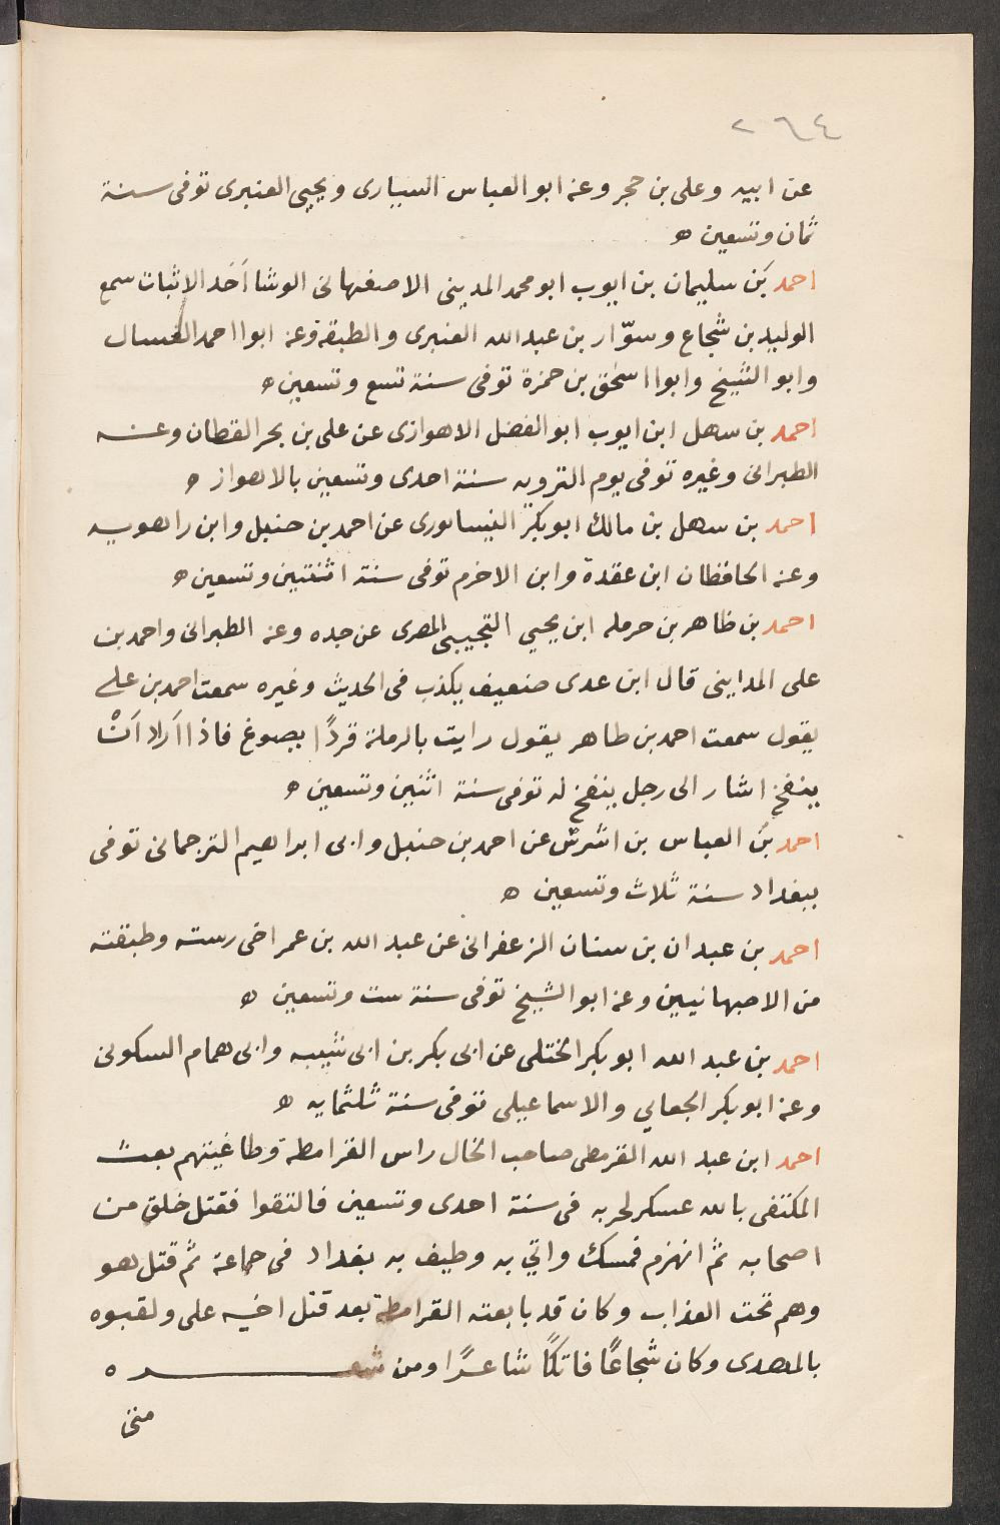 ٢٦٤
عن ابيه وعلى بن حجر وعنه ابو العباس السيارى ويحيى العنبرى توفى سنة
ثمان وتسعين ه
احمد بن سليمان بن ايوب ابو محمد المدينى الاصفهانى الوشا اَخد الاثبات سمع
الوليد بن شجاع وسوّار بن عبد الله العنبرى والطبقة وعنه ابوا احمد الغسال
وابو الشيخ وابوا اسحٰق بن حمزة توفى سنة تسع وتسعين ه
احمد بن سهل ابن ايوب ابو الفضل الاهوازى عن على بن بحر القطان وعنه
الطبرانى وغيره توفى يوم الترويه سنة احدى وتسعين بالاهواز ه
احمد بن سهل بن مالك ابو بكر النيسابورى عن احمد بن حنبل وابن راهويه
وعنه الحافظان ابن عقدة وابن الاخرم توفى سنة اثنتين وتسعين ه
احمد بن طاهر بن حرمله ابن يحيي التجيبى المصرى عن جده وعنه الطبرانى واحمد بن
على المداينى قال ابن عدى ضعيف يكذب فى الحديث وغيره سمعت احمد بن على
يقول سمعت احمد بن طاهر يقول رايت بالرملة قردًا يصوغ فاذا اَراد اَنْ
ينفخ اشار الى رجل ينفخ له توفى سنة اثنين وتسعين ه
احمد بنُ العباس بن اشرش عن احمد بن حنبل وابى ابراهيم الترجمانى توفى
ببغداد سنة ثلاث وتسعين ه
احمد بن عبدان بن سنان الزعفرانى عن عبد الله بن عمر اخى رسته وطبقته
من الاصبهانيين وعنه ابو الشيخ توفى سنة ست وتسعين ه
احمد بن عبد الله ابو بكر الختلى عن ابى بكر بن ابى شيبه وابى همام السكونى
وعنه ابو بكر الجعابي والاسماعيلى توفى سنة ثلثمايه ه
احمد ابن عبد الله القرمطى صاحب الخال راس القرامطة وطاغيتهم بعث
المكتفى بالله عسكر لحربه فى سنة احدى وتسعين فالتقوا فقتل خلق من
اصحابه ثم انهزم فمسك واتي به وطيف به بغداد فى جماعة ثم قتل هو
وهم تحت العذاب وكان قد بابعته القرامطة بعد قتل اخيه على ولقبوه
بالمهدى وكان شجاعًا فاتكًا شاعرًا ومن شعره